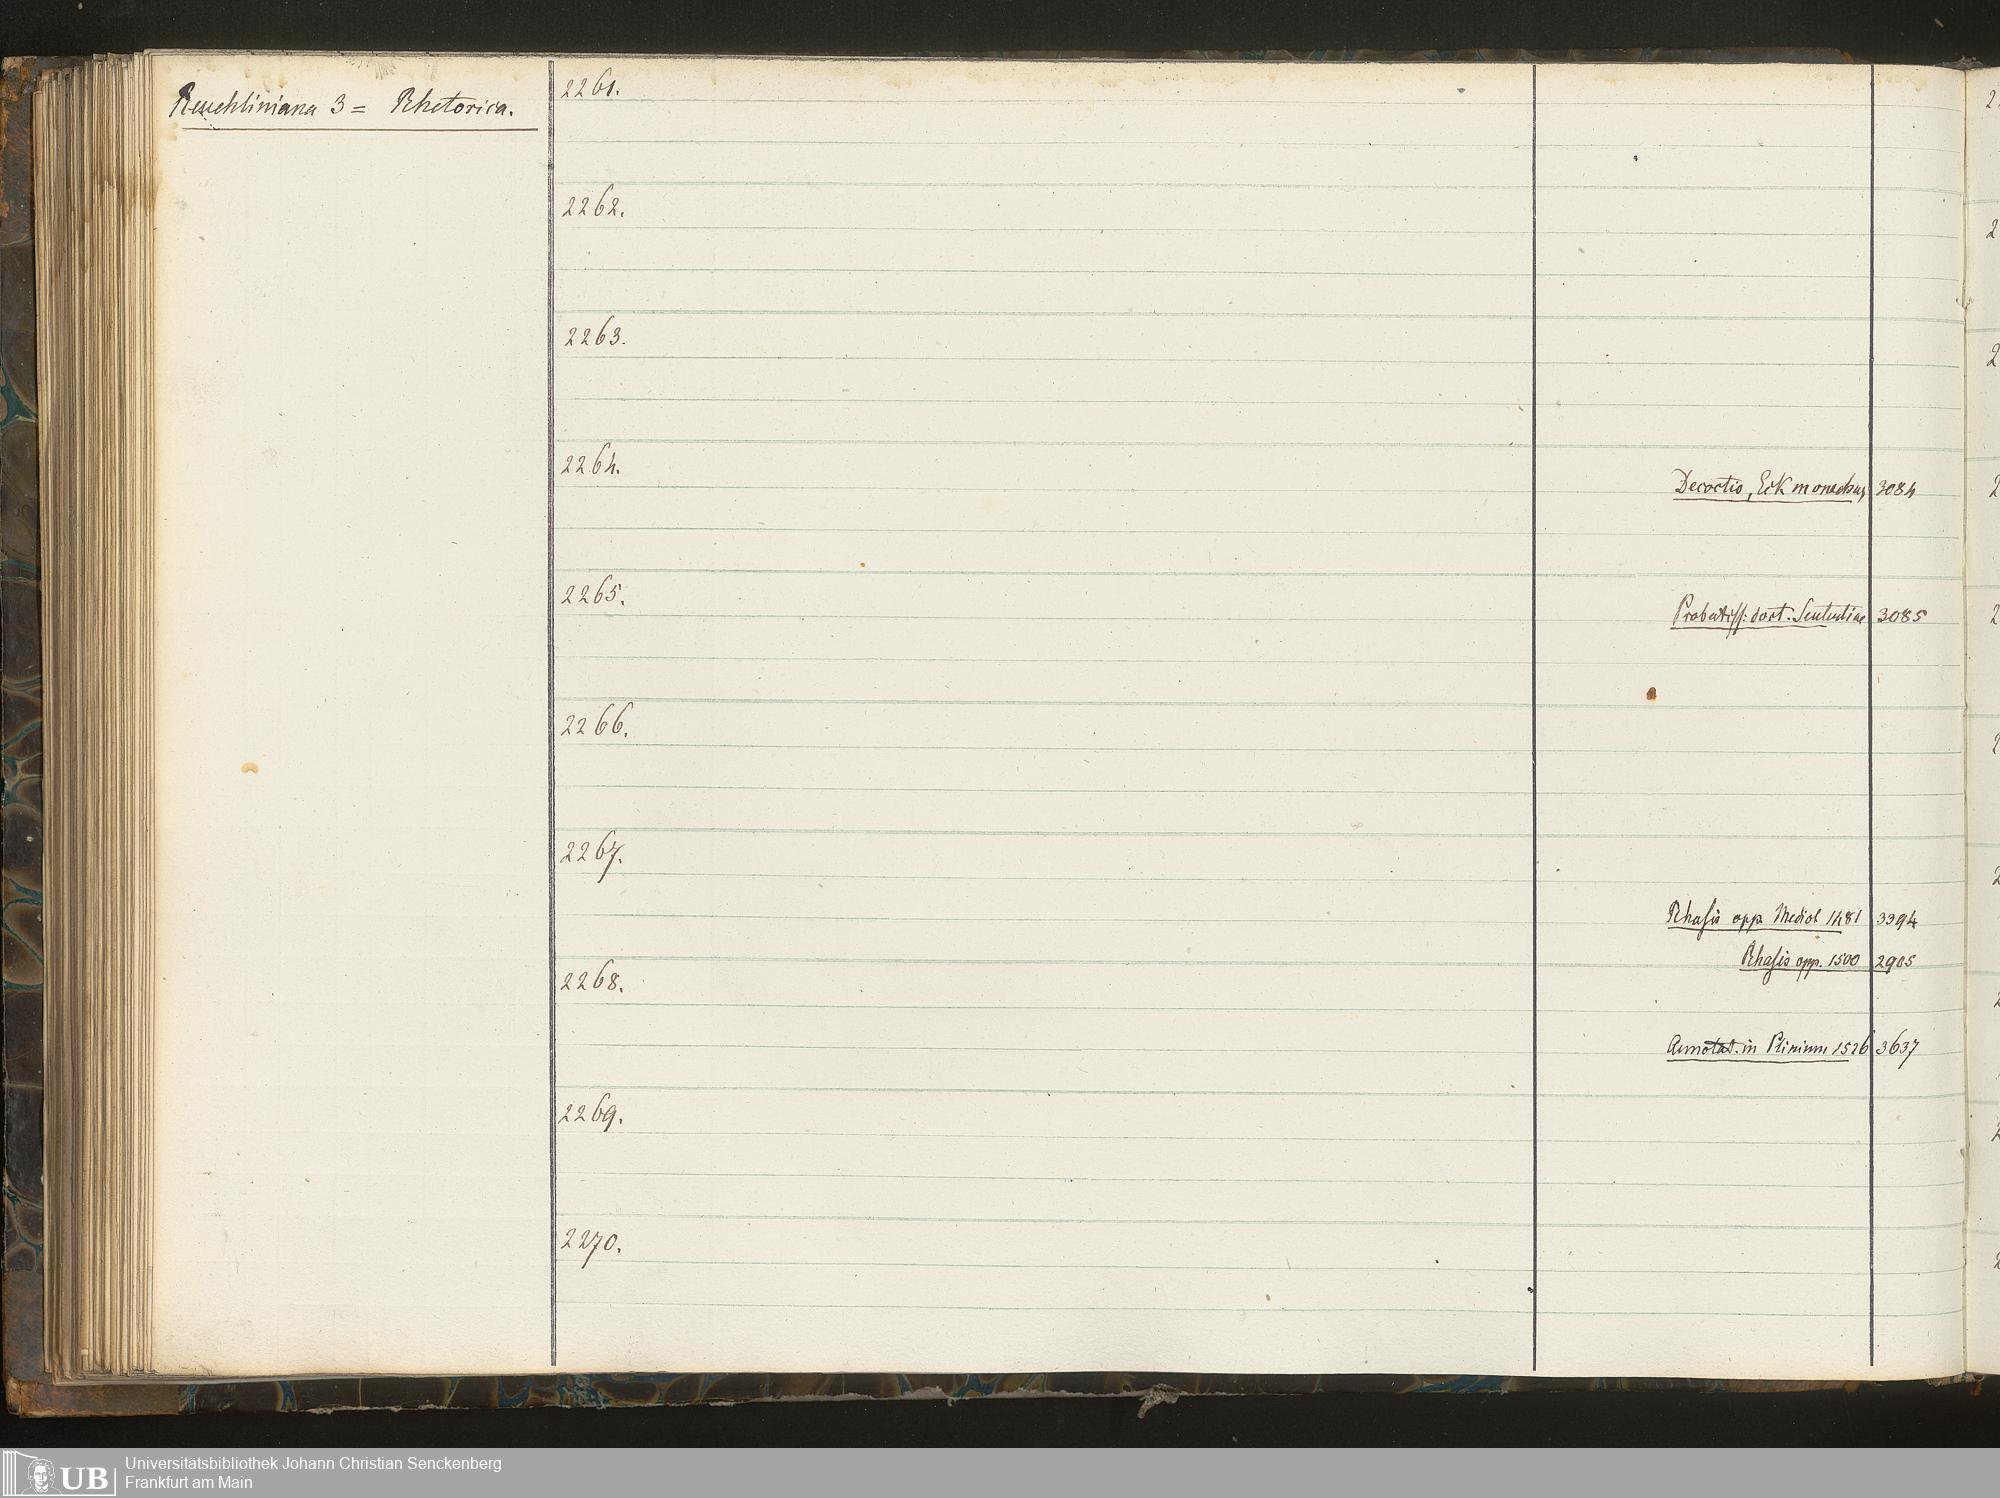 Reuchliniana 3 = Rhetorica.
2261.
2262.
2263.
2264.
Decoctio, Eck monachus 3084
2265.
Probatiss: doct. Sententiae 3085
2266.
2267.
Rhasis opp Mediol 1481 3394
Rhasis opp. 1500 2905
2268.
Annotat. in Plinium 1526 3637
2269.
2270.
UB
Universitätsbibliothek Johann Christian Senckenberg
Frankfurt am Main